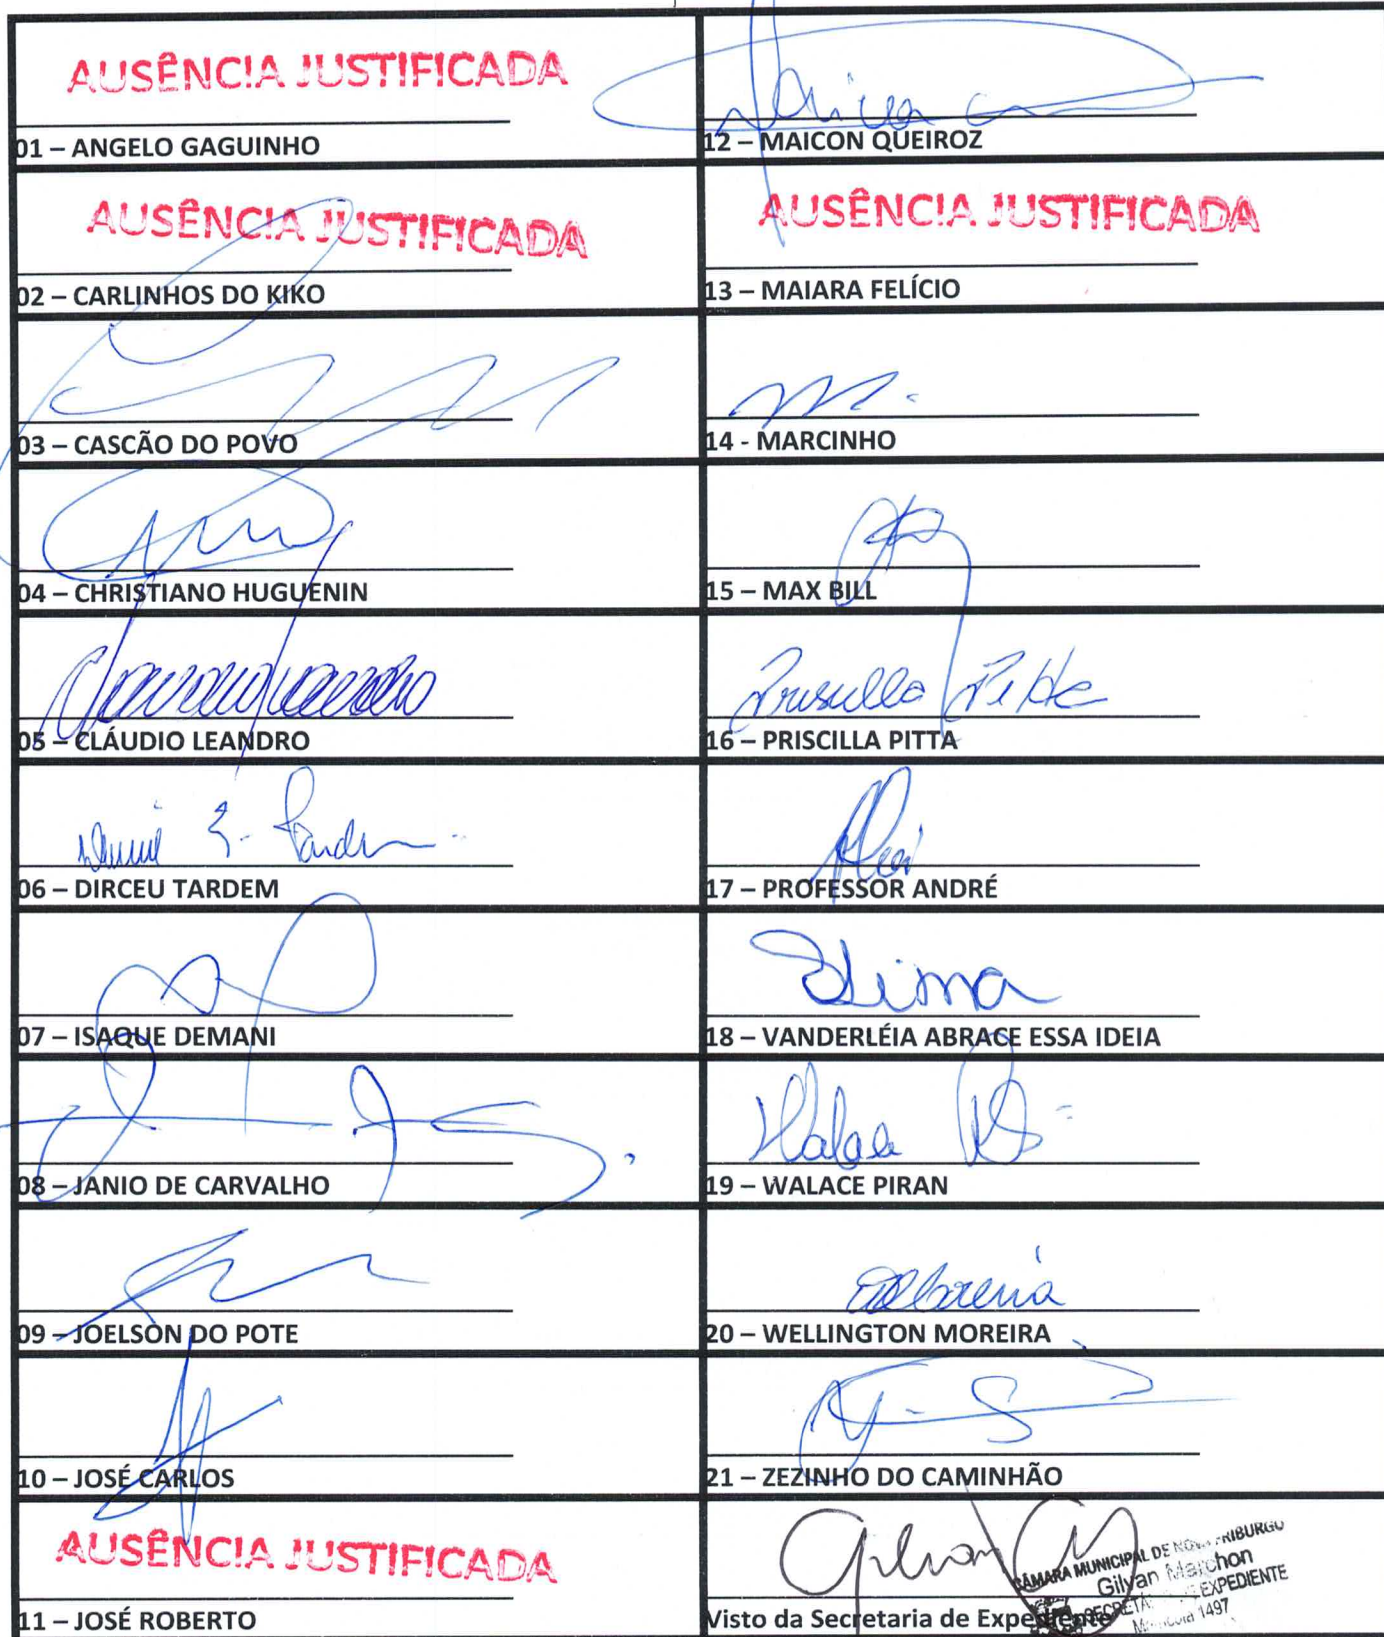 AUSÊNCIA JUSTIFICADA
01 – ANGELO GAGUINHO
AUSÊNCIA JUSTIFICADA
02 – CARLINHOS DO KIKO
03 – CASCÃO DO POVO
04 – CHRISTIANO HUGUENIN
05 – CLÁUDIO LEANDRO
06 – DIRCEU TARDEM
07 – ISAQUE DEMANI
08 – JANIO DE CARVALHO
09 – JOELSON DO POTE
10 – JOSÉ CARLOS
AUSÊNCIA JUSTIFICADA
11 – JOSÉ ROBERTO
12 – MAICON QUEIROZ
AUSÊNCIA JUSTIFICADA
13 – MAIARA FELÍCIO
14 - MARCINHO
15 – MAX BILL
Priscilla Pitta
16 – PRISCILLA PITTA
17 – PROFESSOR ANDRÉ
18 – VANDERLÉIA ABRACE ESSA IDEIA
Walace
19 – WALACE PIRAN
20 – WELLINGTON MOREIRA
21 – ZEZINHO DO CAMINHÃO
Gilvan
CÂMARA MUNICIPAL DE NOVA FRIBURGO
Gilvan Marchon
EXPEDIENTE
1497
Visto da Secretaria de Expediente